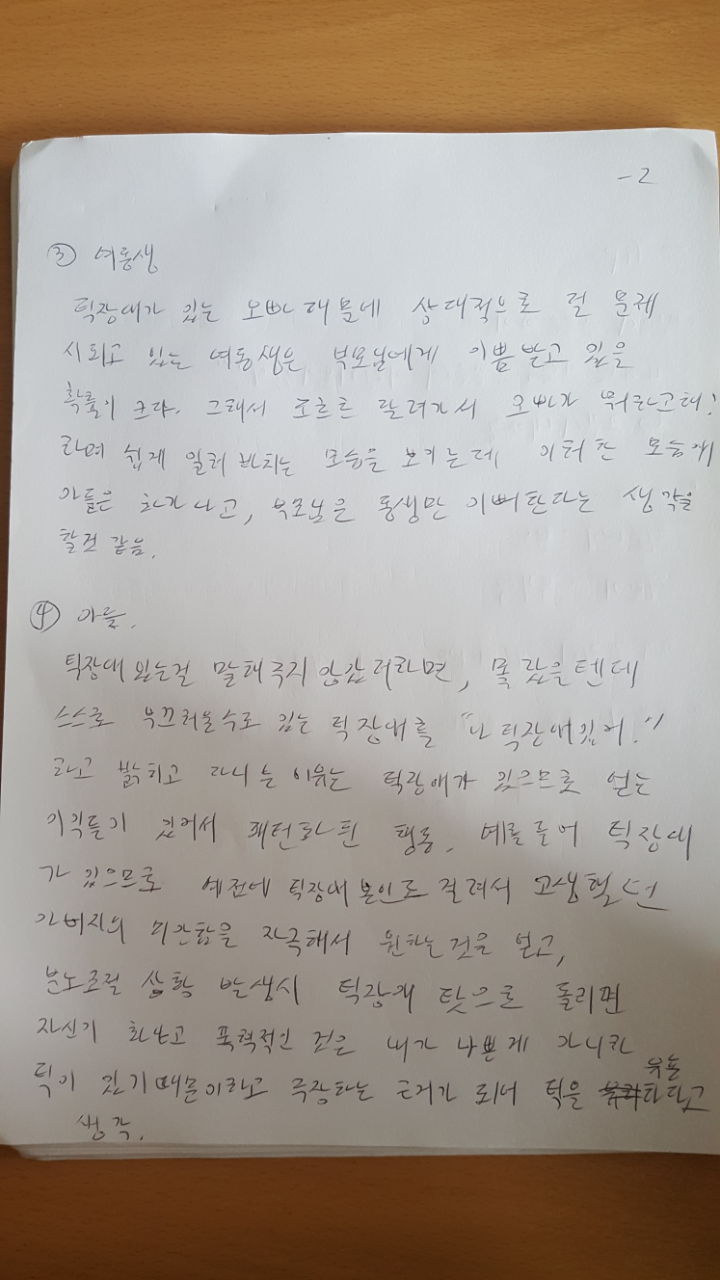 -2
③ 여동생
틱장애가 있는 오빠 때문에 상대적으로 덜 문제
시되고 있는 여동생은 부모님에게 이쁨받고 있을
확률이 크다. 그래서 쪼르르 달려가서 오빠가 뭐라고해!
라며 쉽게 일러 바치는 모습을 보이는데 이러한 모습에
아들은 화가 나고, 부모님은 동생만 이뻐한다는 생각을
할것 같음.
④ 아들.
틱장애 있는걸 말해주지 않았더라면, 몰랐을텐데
스스로 부끄러울수도 있는 틱장애를 "나 틱장애있어!"
라고 밝히고 다니는 이유는 틱장애가 있으므로 얻는
이익들이 있어서 패턴화 된 행동. 예를들어 틱장애
가 있으므로 예전에 틱장애 본인도 걸려서 고생했던
아버지의 미안함을 자극해서 원하는것을 얻고,
분노조절 상황 발생시 틱장애 탓으로 돌리면
자신이 화나고 폭력적인 것은 내가 나쁜게 아니라
틱이 있기때문이라고 주장하는 근거가 되어 틱을 유는다고
생각.